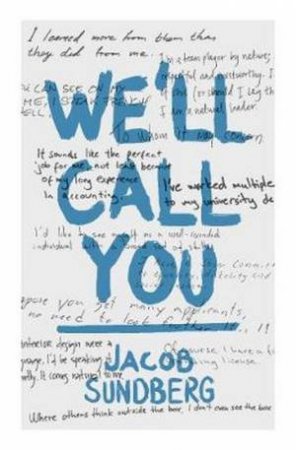 I learned more from them than
they did from me.
I'm a team player by nature,
respectful and trustworthy. I
and (or should I say the
I am a natural leader.
WE'LL
To whom it may concern
It sounds like the perfect
job for me, not least because
of my long experience
in accounting.
CALL
I've worked multiple
to my university de
I'd like to see myself as a well-rounded
individual with a broad set of skills
YOU
you get many applicants,
no need to look further
interior design
I'd be speaking
It comes natural to me
JACOB
Otherwise I have a
driving license.
SUNDBERG
Where others think outside the box, I don't even see the box